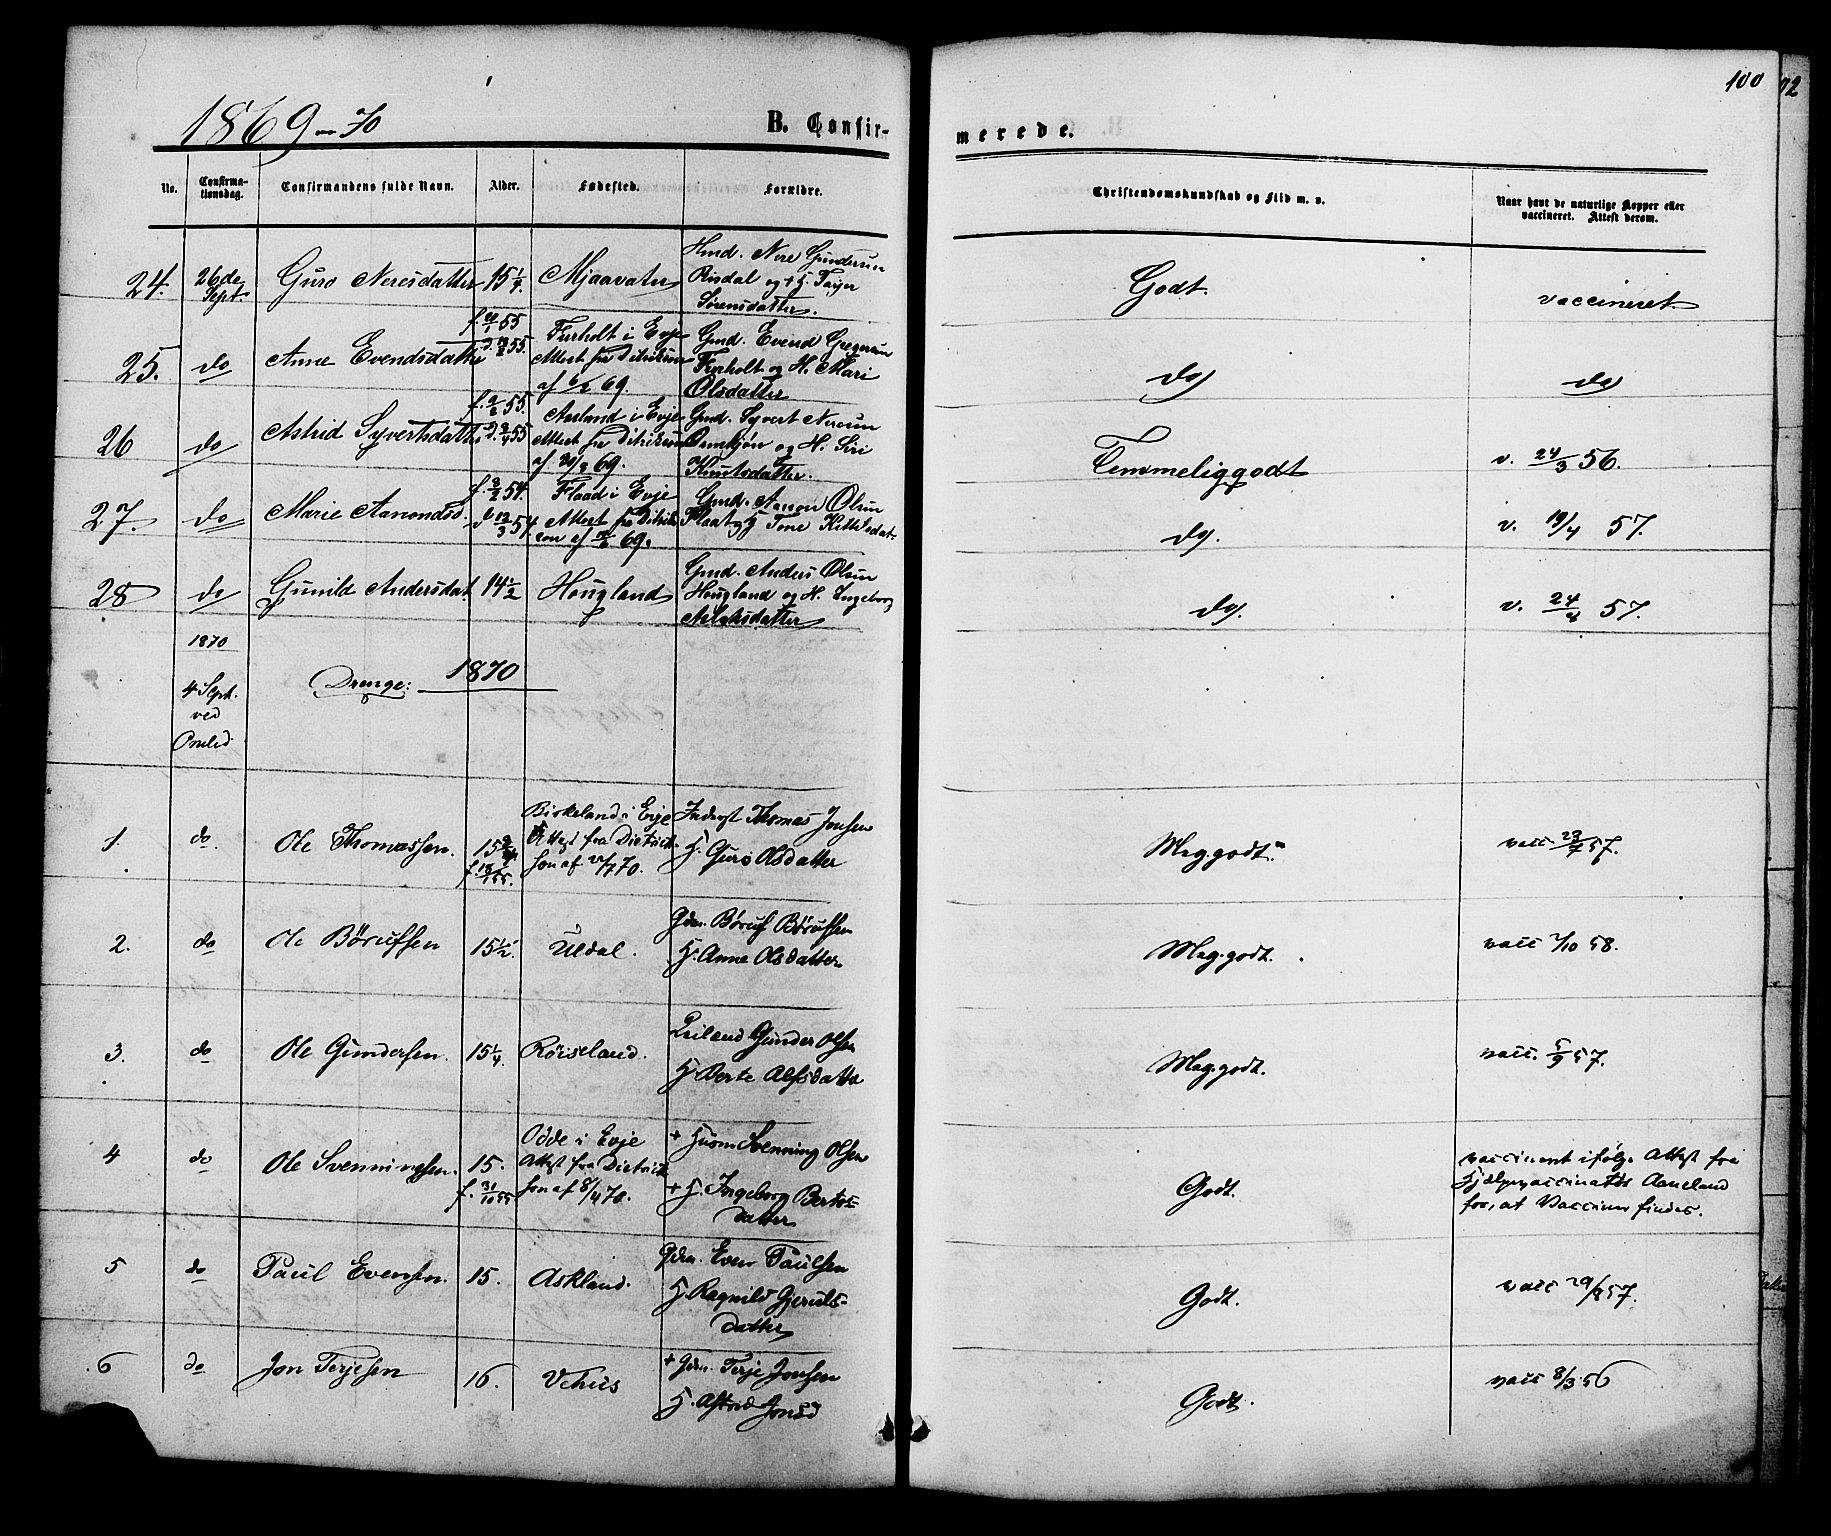 100
1869-70
B. Confir-
merede.
No.
Confirma-
tionsdag.
Confirmandens fulde Navn.
Alder.
Fødested.
Forældre.
Christendomskundskab og Flid m. v.
Naar havt de naturlige Kopper eller
vaccineret. Attest derom.
24. 26de Sept. Guro Neresdatter 15 1/4 Mjaavatn Hmd. Nere Gundersen
Risdal og + H. Taijer
Sørensdatter.
Godt. vaccineret.
25. do Anne Evendsdatter f. 55 Furholt i Evje Gmd. Evend Gregersen
Attest fra Ditrikson Furholt og H. Mari
af 69. Olsdatter
do do
26 do Astrid Syvertsdatter f. 55 Aasland i Evje Gmd. Syvert Neresen
Attest fra Ditrikson og H. Siri
af 69. Knutsdatter.
Temmelig godt v. 24/3 56.
27. do Marie Aanondsd. f. 3/2 54. Flaad i Evje Gmd. Aanon Olsen
d. 12/3 54. Attest fra Ditrik- Flaat og H Tone Kittilsdat-
son af 69.
do. v. 19/4 57.
28 do Gunild Andersdat 14 1/2 Hougland Gmd. Anders Olsen
Hougland og H. Ingeborg
Aslaksdatter
do. v. 57.
1870
4 Sept.
ved
Drenge: 1870
1. do. Ole Thomassen. 15 Birkeland i Evje Inderst Thomas Jensen
Attest fra Dietrich- H. Guro Olsdatter
son af /7 70.
Meg. godt. vacc. 57.
2. do Ole Børufsen 15 1/2. Uldal. Gdm. Børuf Børufsen
H. Anna Olsdatter
Meg. godt. vacc 7/10 58.
3. do Ole Gundersen. 15 1/4. Røiseland. Leiland Gunder Olsen
H. Berte Alfsdatter
Meg. godt. vacc. 5/9 57.
4 do Ole Svenningsen. 15. Odde i Evje + Husm Svenning Olsen
f. 31/10 55 Attest fra Dietrich- + H. Ingeborg Berts-
son af 8/4 70. datter
Godt. vaccineret ifølge Attest fra
Hjælpevaccinatør Aaneland
for, at Vaccinen findes.
5 do Paul Evensen. 15. Askland. Gdm. Even Paulsen
H. Ragnild Gjeruls-
datter
Godt. vacc 29/8 57.
6 do Jon Terjesen 16. Vehus + Gdm. Terje Jonsen
H. Astrid Jonsd
Godt. vacc 8/3 56